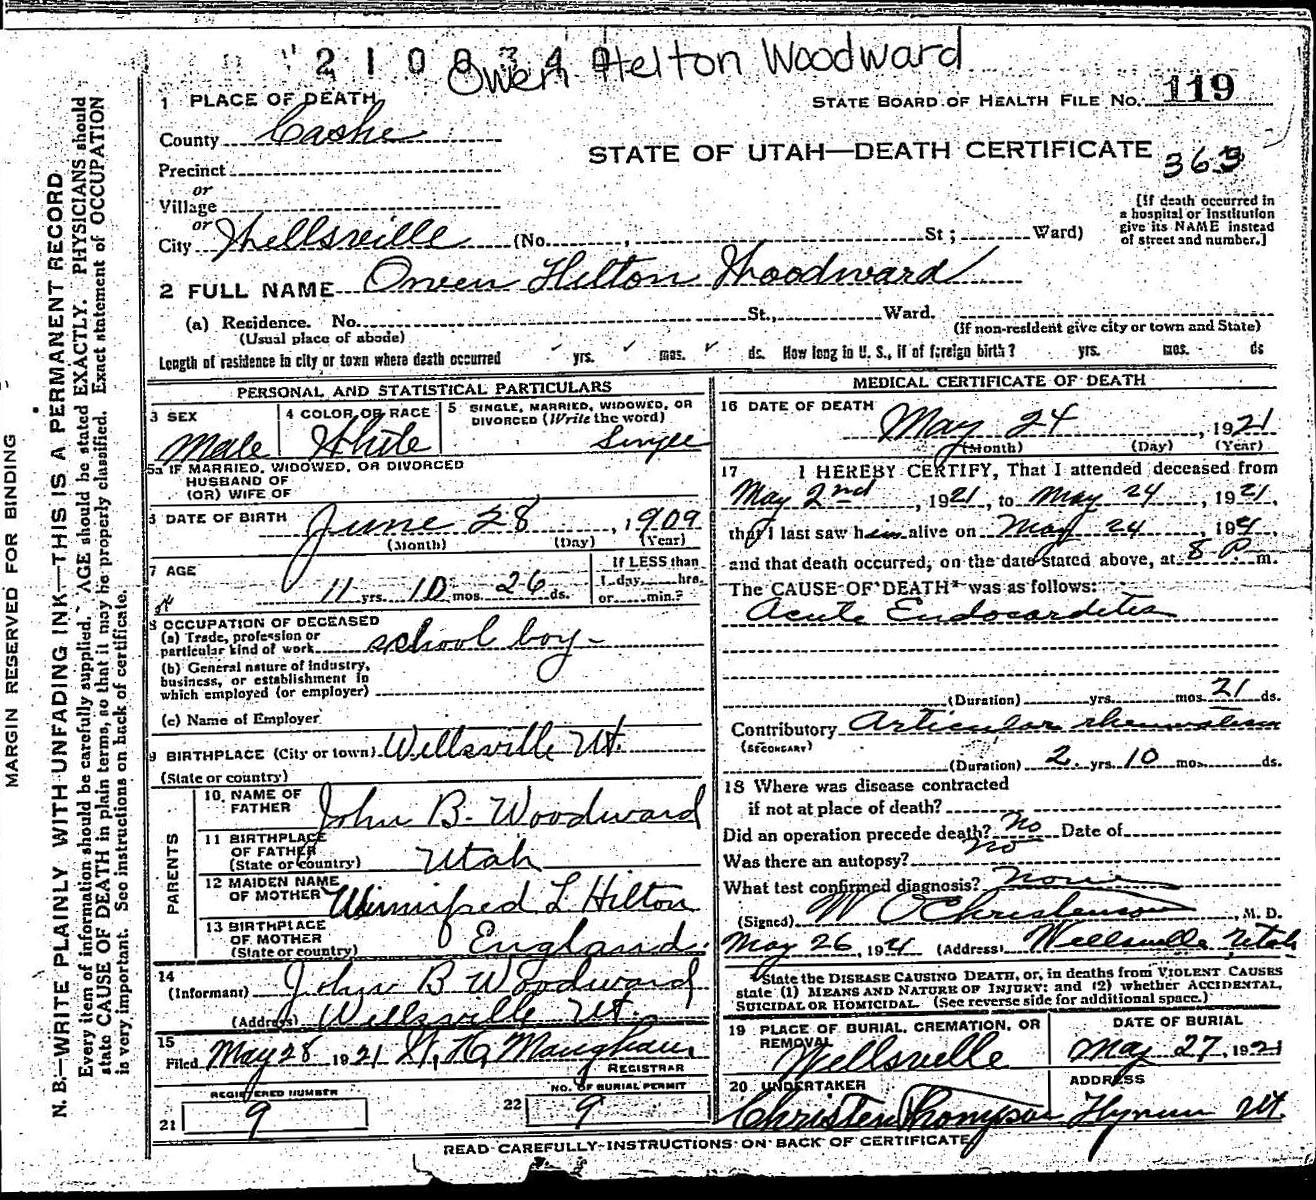 210834
Owen Helton Woodward
1 PLACE OF DEATH
STATE BOARD OF HEALTH FILE NO. 119
County Cashe
STATE OF UTAH—DEATH CERTIFICATE 363
Precinct
or
Village
or
City Wellsville (No. , St; Ward)
[If death occurred in
a hospital or institution
give its NAME instead
of street and number.]
2 FULL NAME Owen Hilton Woodward
(a) Residence. No. St., Ward.
(Usual place of abode) (If non-resident give city or town and State)
Length of residence in city or town where death occurred yrs. mos. ds. How long in U. S., if of foreign birth? yrs. mos. ds
PERSONAL AND STATISTICAL PARTICULARS
3 SEX Male
4 COLOR OR RACE White
5 SINGLE, MARRIED, WIDOWED, OR
DIVORCED (Write the word)
Single
5a IF MARRIED, WIDOWED, OR DIVORCED
HUSBAND OF
(OR) WIFE OF
6 DATE OF BIRTH June 28, 1909
(Month) (Day) (Year)
7 AGE 11 yrs. 10 mos. 26 ds.
If LESS than
1 day, hrs.
or min.?
8 OCCUPATION OF DECEASED
(a) Trade, profession or
particular kind of work school boy-
(b) General nature of industry,
business, or establishment in
which employed (or employer)
(c) Name of Employer
9 BIRTHPLACE (City or town) Wellsville Ut.
(State or country)
PARENTS
10 NAME OF
FATHER John B. Woodward
11 BIRTHPLACE
OF FATHER
(State or country) Utah
12 MAIDEN NAME
OF MOTHER Winnifred L Hilton
13 BIRTHPLACE
OF MOTHER
(State or country) England.
14
(Informant) John B Woodward
(Address) Wellsville Ut.
15
Filed May 28 1921 W. H. Maughan,
REGISTRAR
REGISTERED NUMBER
21 9
NO. OF BURIAL PERMIT
22 9
MEDICAL CERTIFICATE OF DEATH
16 DATE OF DEATH May 24, 1921
(Month) (Day) (Year)
17 I HEREBY CERTIFY, That I attended deceased from
May 2nd, 1921, to May 24, 1921,
that I last saw him alive on May 24 1921
and that death occurred, on the date stated above, at 8 P m.
The CAUSE OF DEATH* was as follows:
Acute Endocarditis
(Duration) yrs. mos. 21 ds.
Contributory Articular rheumatism
(SECONDARY)
(Duration) 2 yrs. 10 mos. ds.
18 Where was disease contracted
if not at place of death?
Did an operation precede death? No Date of
Was there an autopsy? No
What test confirmed diagnosis? None
(Signed) W O Christenson, M. D.
May 26, 1921 (Address) Wellsville Utah
*State the DISEASE CAUSING DEATH, or, in deaths from VIOLENT CAUSES
state (1) MEANS AND NATURE OF INJURY: and (2) whether ACCIDENTAL,
SUICIDAL OR HOMICIDAL. (See reverse side for additional space.)
19 PLACE OF BURIAL, CREMATION, OR
REMOVAL
Wellsville
DATE OF BURIAL
May 27, 1921
20 UNDERTAKER
Christen Thompson
ADDRESS
Hyrum Ut.
READ CAREFULLY—INSTRUCTIONS ON BACK OF CERTIFICATE
MARGIN RESERVED FOR BINDING
N. B.—WRITE PLAINLY WITH UNFADING INK—THIS IS A PERMANENT RECORD
Every item of information should be carefully supplied. AGE should be stated EXACTLY. PHYSICIANS should
state CAUSE OF DEATH in plain terms, so that it may be properly classified. Exact statement of OCCUPATION
is very important. See instructions on back of certificate.